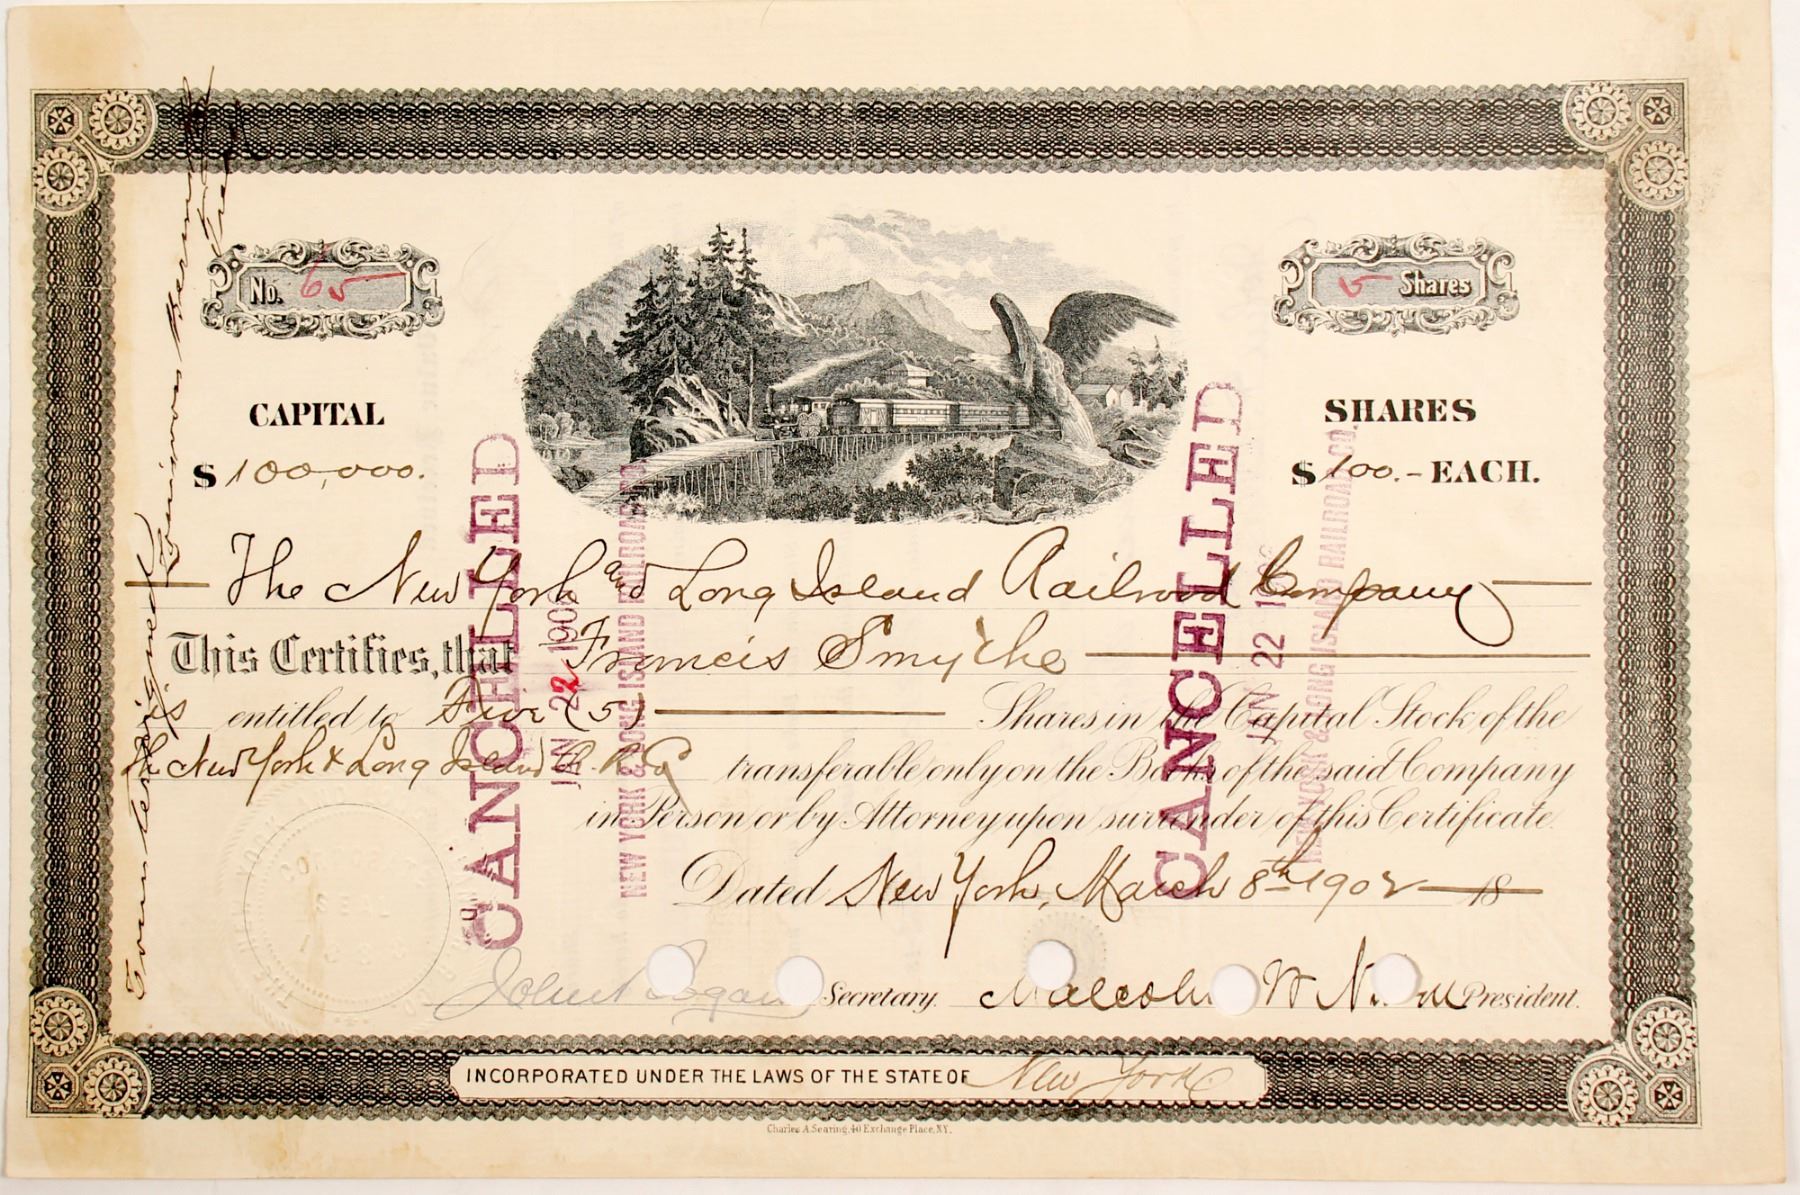 No. 65
5 Shares
CAPITAL
$ 100,000.
SHARES
$ 100.- EACH.
The New York and Long Island Railroad Company
This Certifies, that Francis Smythe
entitled to Five (5) Shares in the Capital Stock of the
The New York & Long Island R. R. Co transferable only on the Books of the said Company
in Person or by Attorney upon surrender of this Certificate.
Dated New York, March 8th 1902 18
John Logan Secretary. Malcolm W N President.
INCORPORATED UNDER THE LAWS OF THE STATE OF New York.
Charles A. Searing, 40 Exchange Place, N.Y.
Countersigned
Treas
CANCELLED
JAN 22 190
NEW YORK & LONG ISLAND RAILROAD CO.
CANCELLED
JAN 22 190
NEW YORK & LONG ISLAND RAILROAD CO.